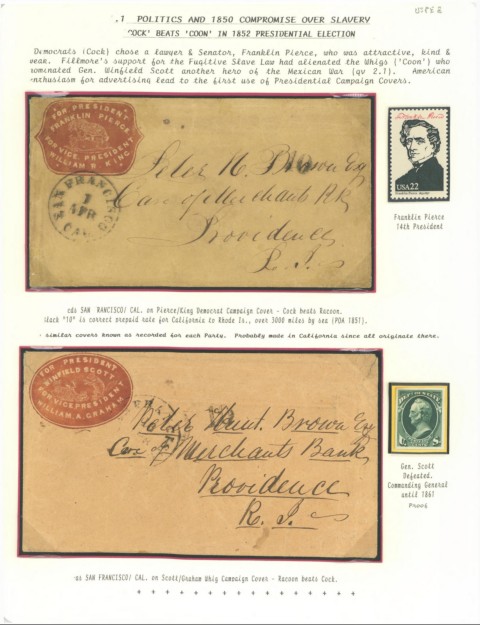 .1 POLITICS AND 1850 COMPROMISE OVER SLAVERY
'COCK' BEATS 'COON' IN 1852 PRESIDENTIAL ELECTION
Democrats (Cock) chose a lawyer & Senator, Franklin Pierce, who was attractive, kind &
weak. Fillmore's support for the Fugitive Slave Law had alienated the Whigs ('Coon') who
nominated Gen. Winfield Scott another hero of the Mexican War (qv 2.1). American
enthusiasm for advertising lead to the first use of Presidential Campaign Covers.
FOR PRESIDENT
FRANKLIN PIERCE
FOR VICE PRESIDENT
WILLIAM R KING
SAN FRANCISCO
1
APR
CAL.
Peter H. Brown Esq
Care of Merchants Bk
Providence
R. I.
USA 22
Franklin Pierce
14th President
cds SAN RANCISCO/ CAL. on Pierce/King Democrat Campaign Cover - Cock beats Racoon.
Black "10" is correct prepaid rate for California to Rhode Is., over 3000 miles by sea (POA 1851).
similar covers known as recorded for each Party. Probably made in California since all originate there.
FOR PRESIDENT
WINFIELD SCOTT
FOR VICE PRESIDENT
WILLIAM A. GRAHAM
Brown Esq
Care of Merchants Bank
Providence
R. I.
Gen. Scott
Defeated.
Commanding General
until 1861
Proof
as SAN FRANCISCO/ CAL. on Scott/Graham Whig Campaign Cover - Racoon beats Cock.
+ + + + + + + + + + + + + + +